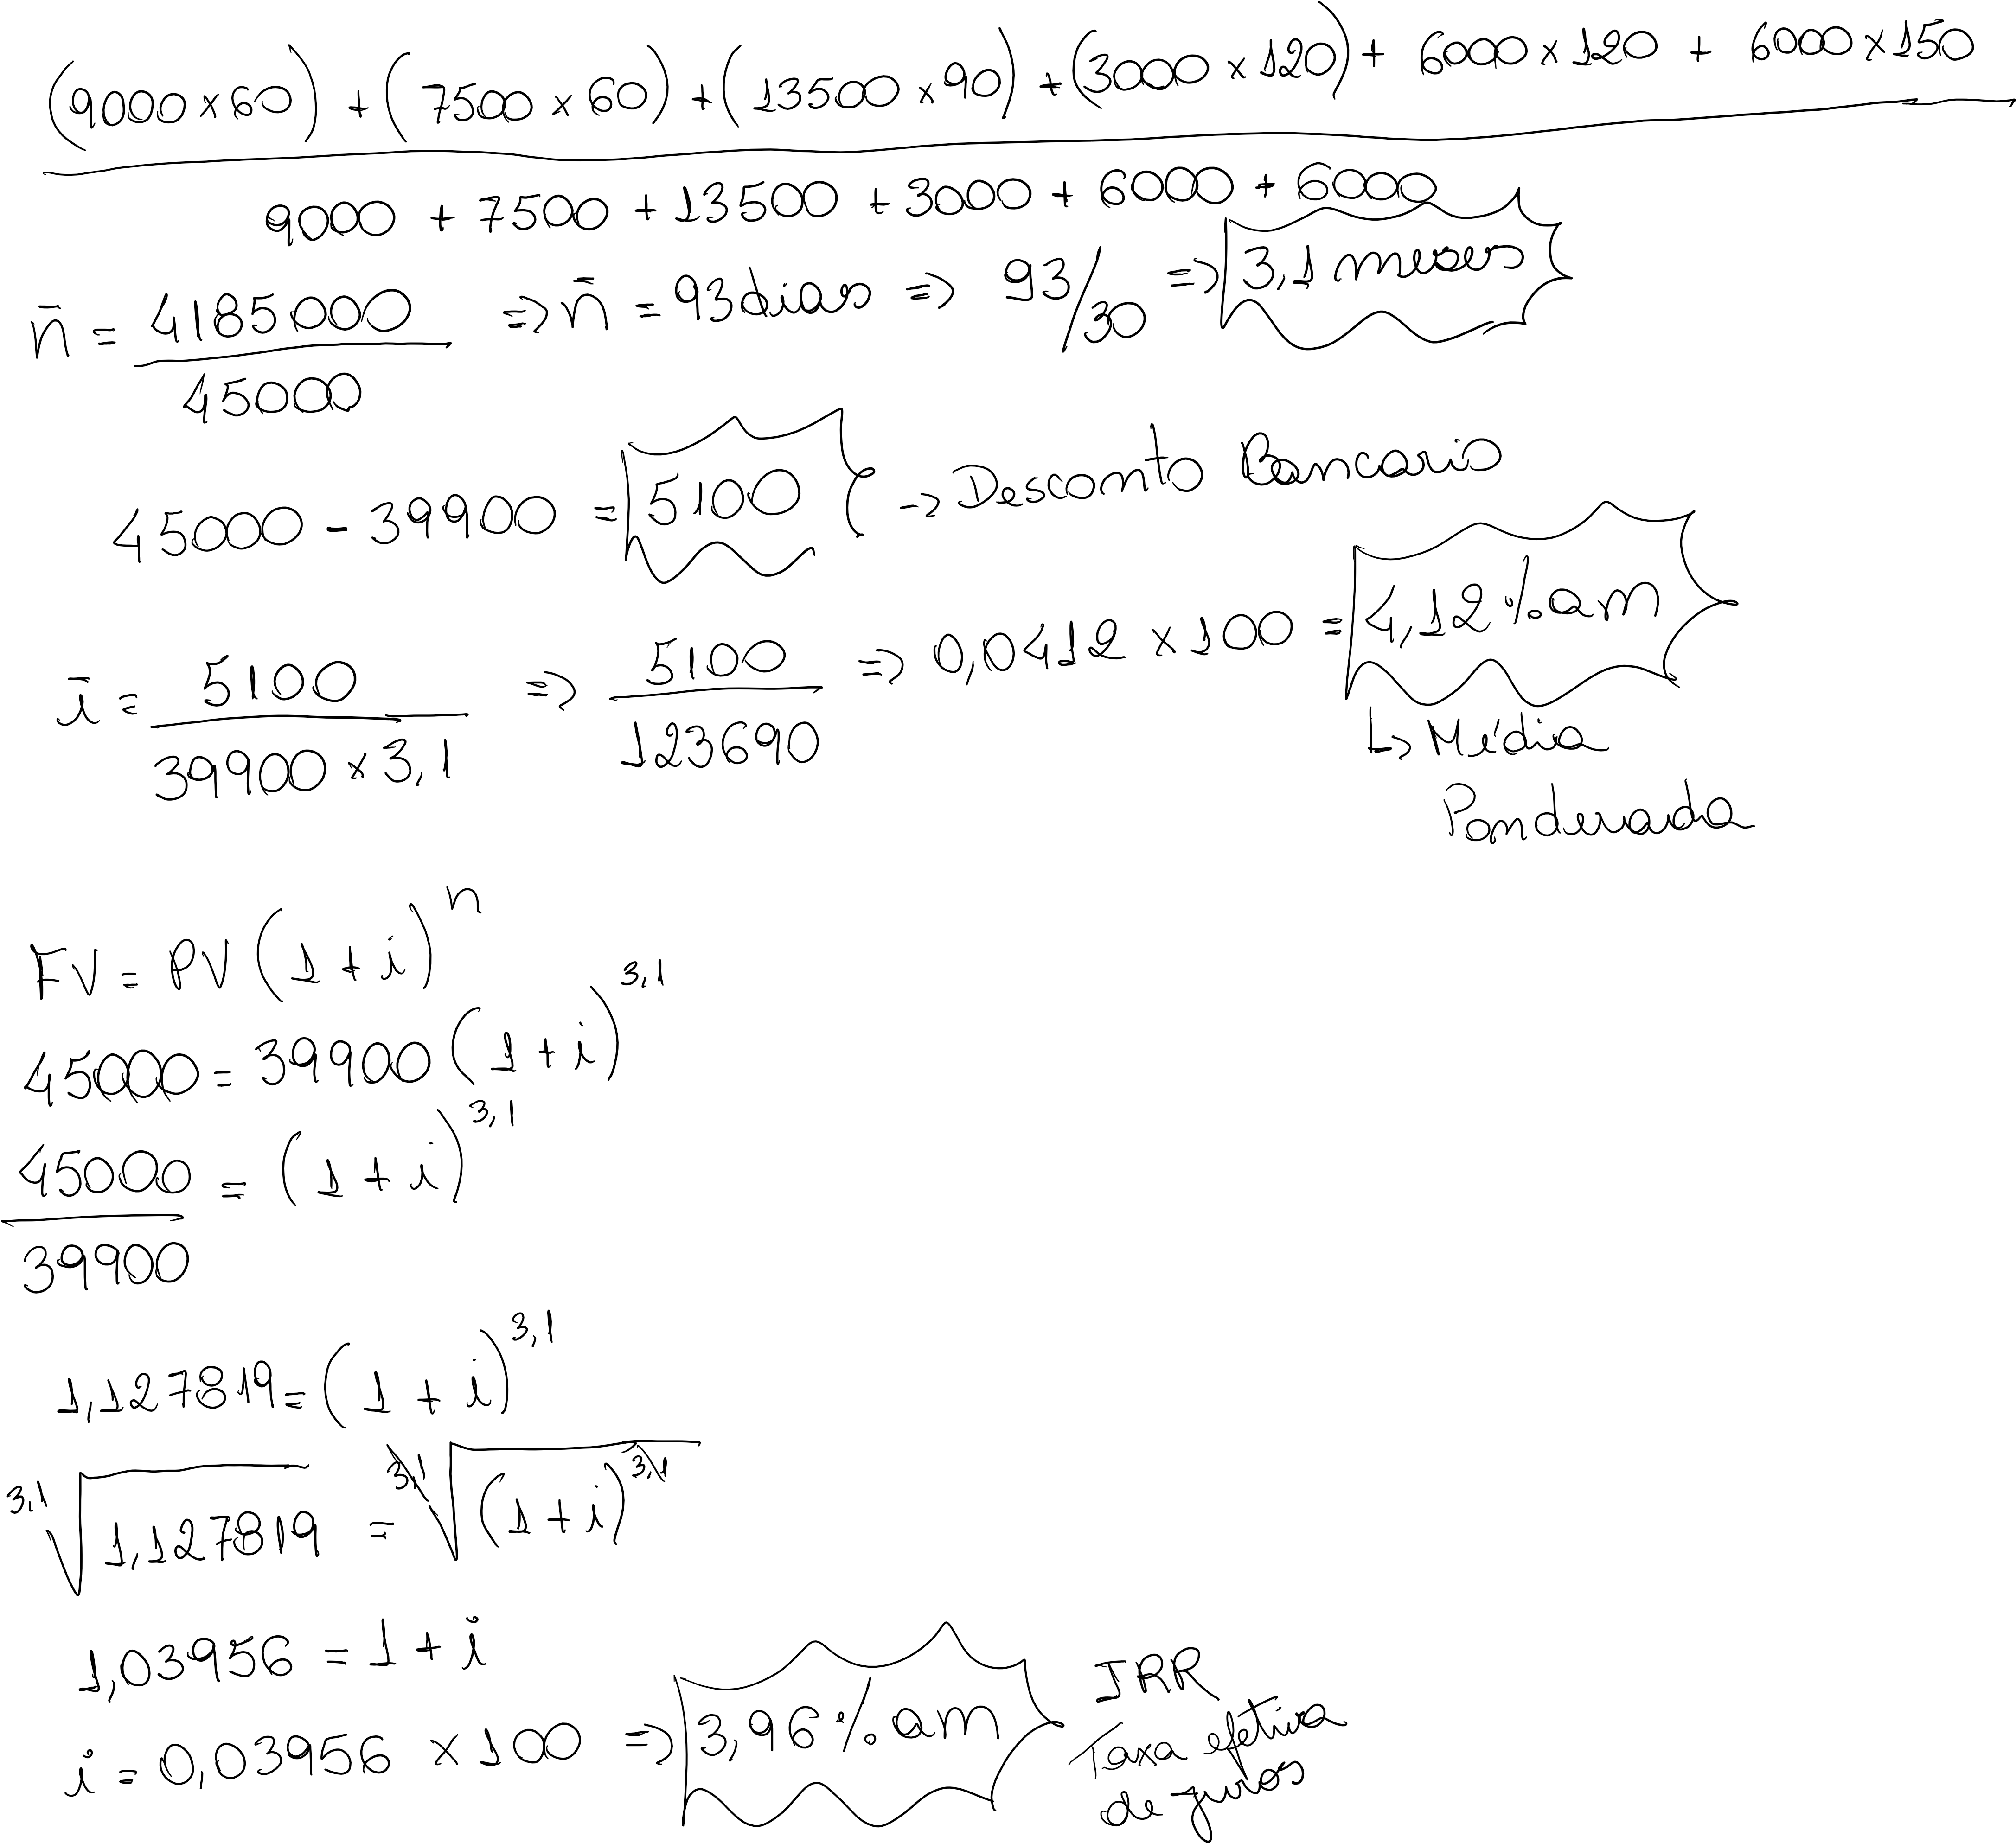 (9000 x 60) + (7500 x 60) + (13500 x 90) + (3000 x 120) + 6000 x 120 + 6000 x 150
9000 + 7500 + 13500 + 3000 + 6000 + 6000
n̄ = 4185000 / 45000 => n̄ = 93 dias => 93/30 => 3,1 meses
45000 - 39900 = 5100 -> Desconto Bancario
ī = 5100 / 39900 x 3,1 => 5100 / 123690 => 0,0412 x 100 = 4,12 % am
↳ Média
Ponderada
FV = PV (1 + i)^n
45000 = 39900 (1 + i)^3,1
45000 / 39900 = (1 + i)^3,1
1,127819 = (1 + i)^3,1
3,1√1,127819 = 3,1√(1 + i)^3,1
1,03956 = 1 + i
i = 0,03956 x 100 => 3,96 % am
IRR
Taxa efetiva
de juros